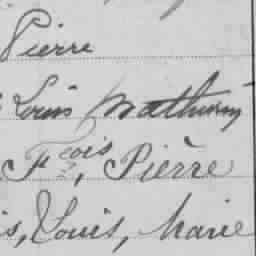 Pierre
Louis Mathurin
Fcois, Pièrre
is, Louis, Marie